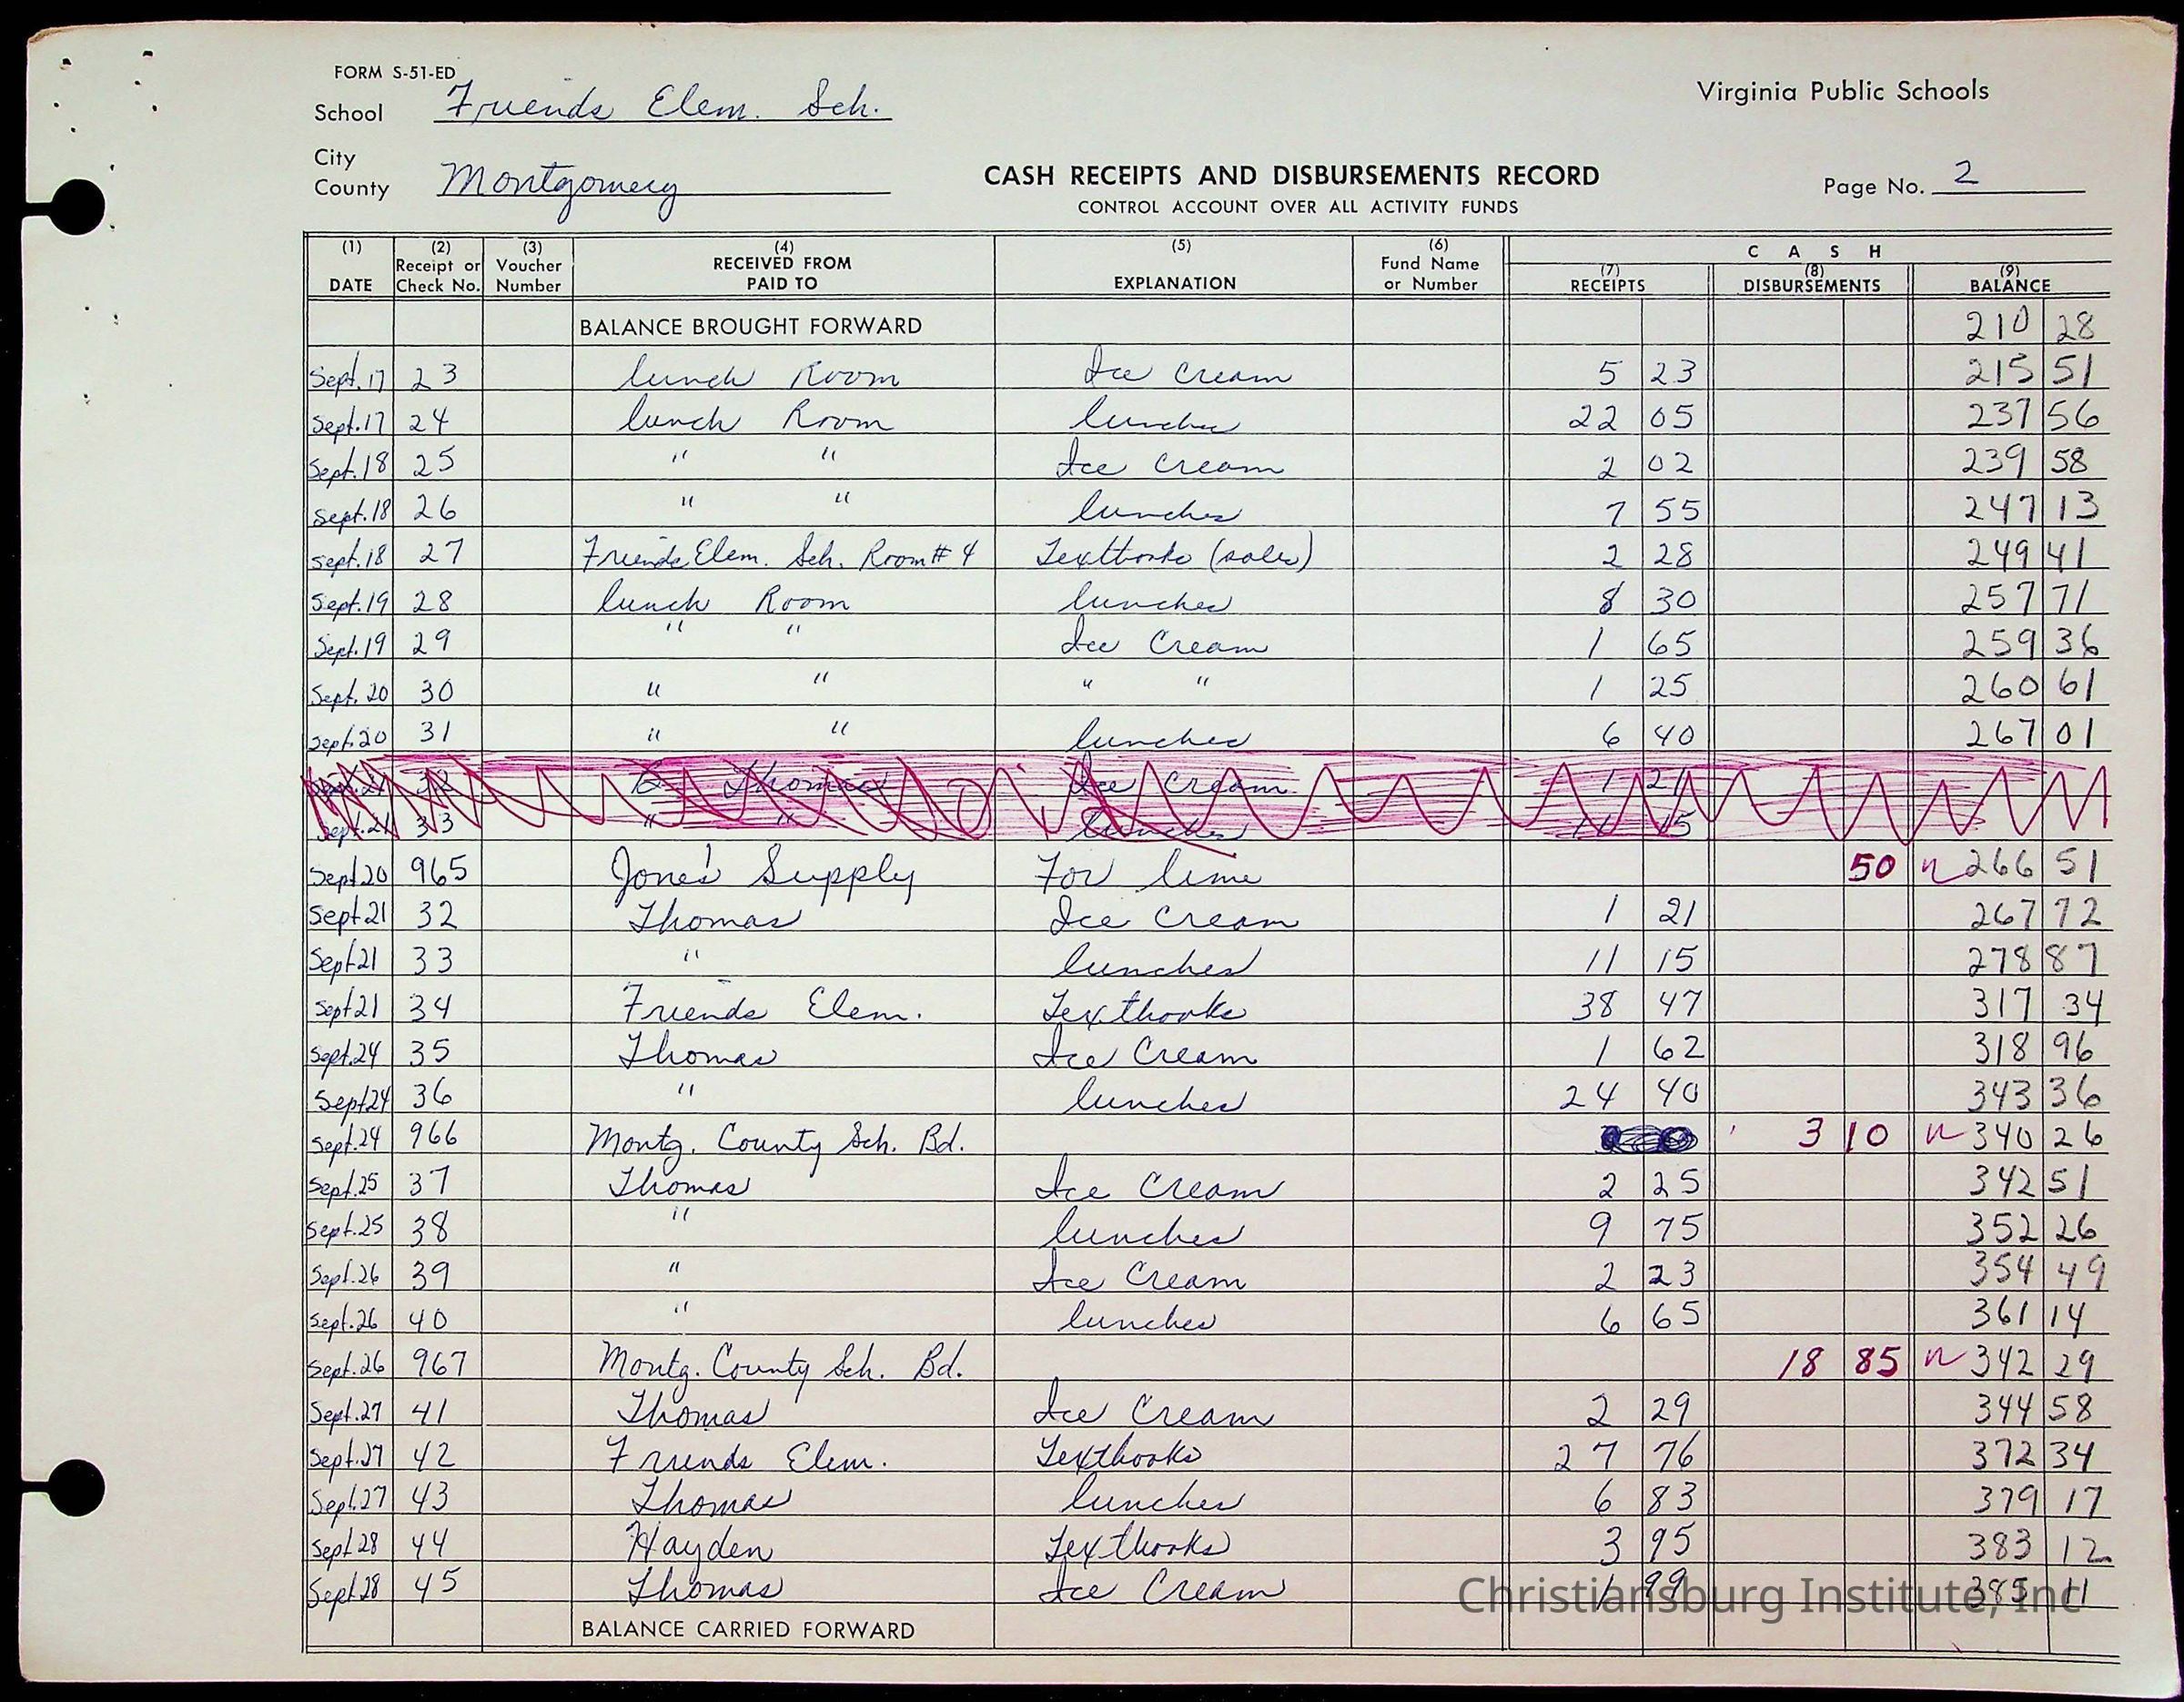 FORM S-51-ED
School Friends Elem. Sch.
Virginia Public Schools
City
County Montgomery
CASH RECEIPTS AND DISBURSEMENTS RECORD
Page No. 2
CONTROL ACCOUNT OVER ALL ACTIVITY FUNDS
(1) (2) (3) (4) (5) (6) C A S H
DATE Receipt or Check No. Voucher Number RECEIVED FROM PAID TO EXPLANATION Fund Name or Number (7) RECEIPTS (8) DISBURSEMENTS (9) BALANCE
BALANCE BROUGHT FORWARD 210 28
Sept. 17 23 lunch Room Ice Cream 5 23 215 51
Sept. 17 24 lunch Room lunches 22 05 237 56
Sept. 18 25 " " Ice Cream 2 02 239 58
Sept. 18 26 " " lunches 7 55 247 13
Sept. 18 27 Friends Elem. Sch. Room # 4 Textbooks (sales) 2 28 249 41
Sept. 19 28 lunch Room lunches 8 30 257 71
Sept. 19 29 " " Ice Cream 1 65 259 36
Sept. 20 30 " " " " 1 25 260 61
Sept. 20 31 " " lunches 6 40 267 01
Sept. 21 32 Thomas Ice Cream 1 21
Sept. 21 33 " " lunches 11 15
Sept 20 965 Jone's Supply For lime 50 266 51
Sept 21 32 Thomas Ice Cream 1 21 267 72
Sept 21 33 " lunches 11 15 278 87
Sept 21 34 Friends Elem. Textbooks 38 47 317 34
Sept. 24 35 Thomas Ice Cream 1 62 318 96
Sept 24 36 " lunches 24 40 343 36
Sept. 24 966 Montg. County Sch. Bd. 3 10 340 26
Sept. 25 37 Thomas Ice Cream 2 25 342 51
Sept. 25 38 " lunches 9 75 352 26
Sept. 26 39 " Ice Cream 2 23 354 49
Sept. 26 40 " lunches 6 65 361 14
Sept. 26 967 Montg. County Sch. Bd. 18 85 342 29
Sept. 27 41 Thomas Ice Cream 2 29 344 58
Sept. 27 42 Friends Elem. Textbooks 27 76 372 34
Sept. 27 43 Thomas lunches 6 83 379 17
Sept 28 44 Hayden Textbooks 3 95 383 12
Sept 28 45 Thomas Ice Cream 1 99 385 11
Christiansburg Institute, Inc
BALANCE CARRIED FORWARD